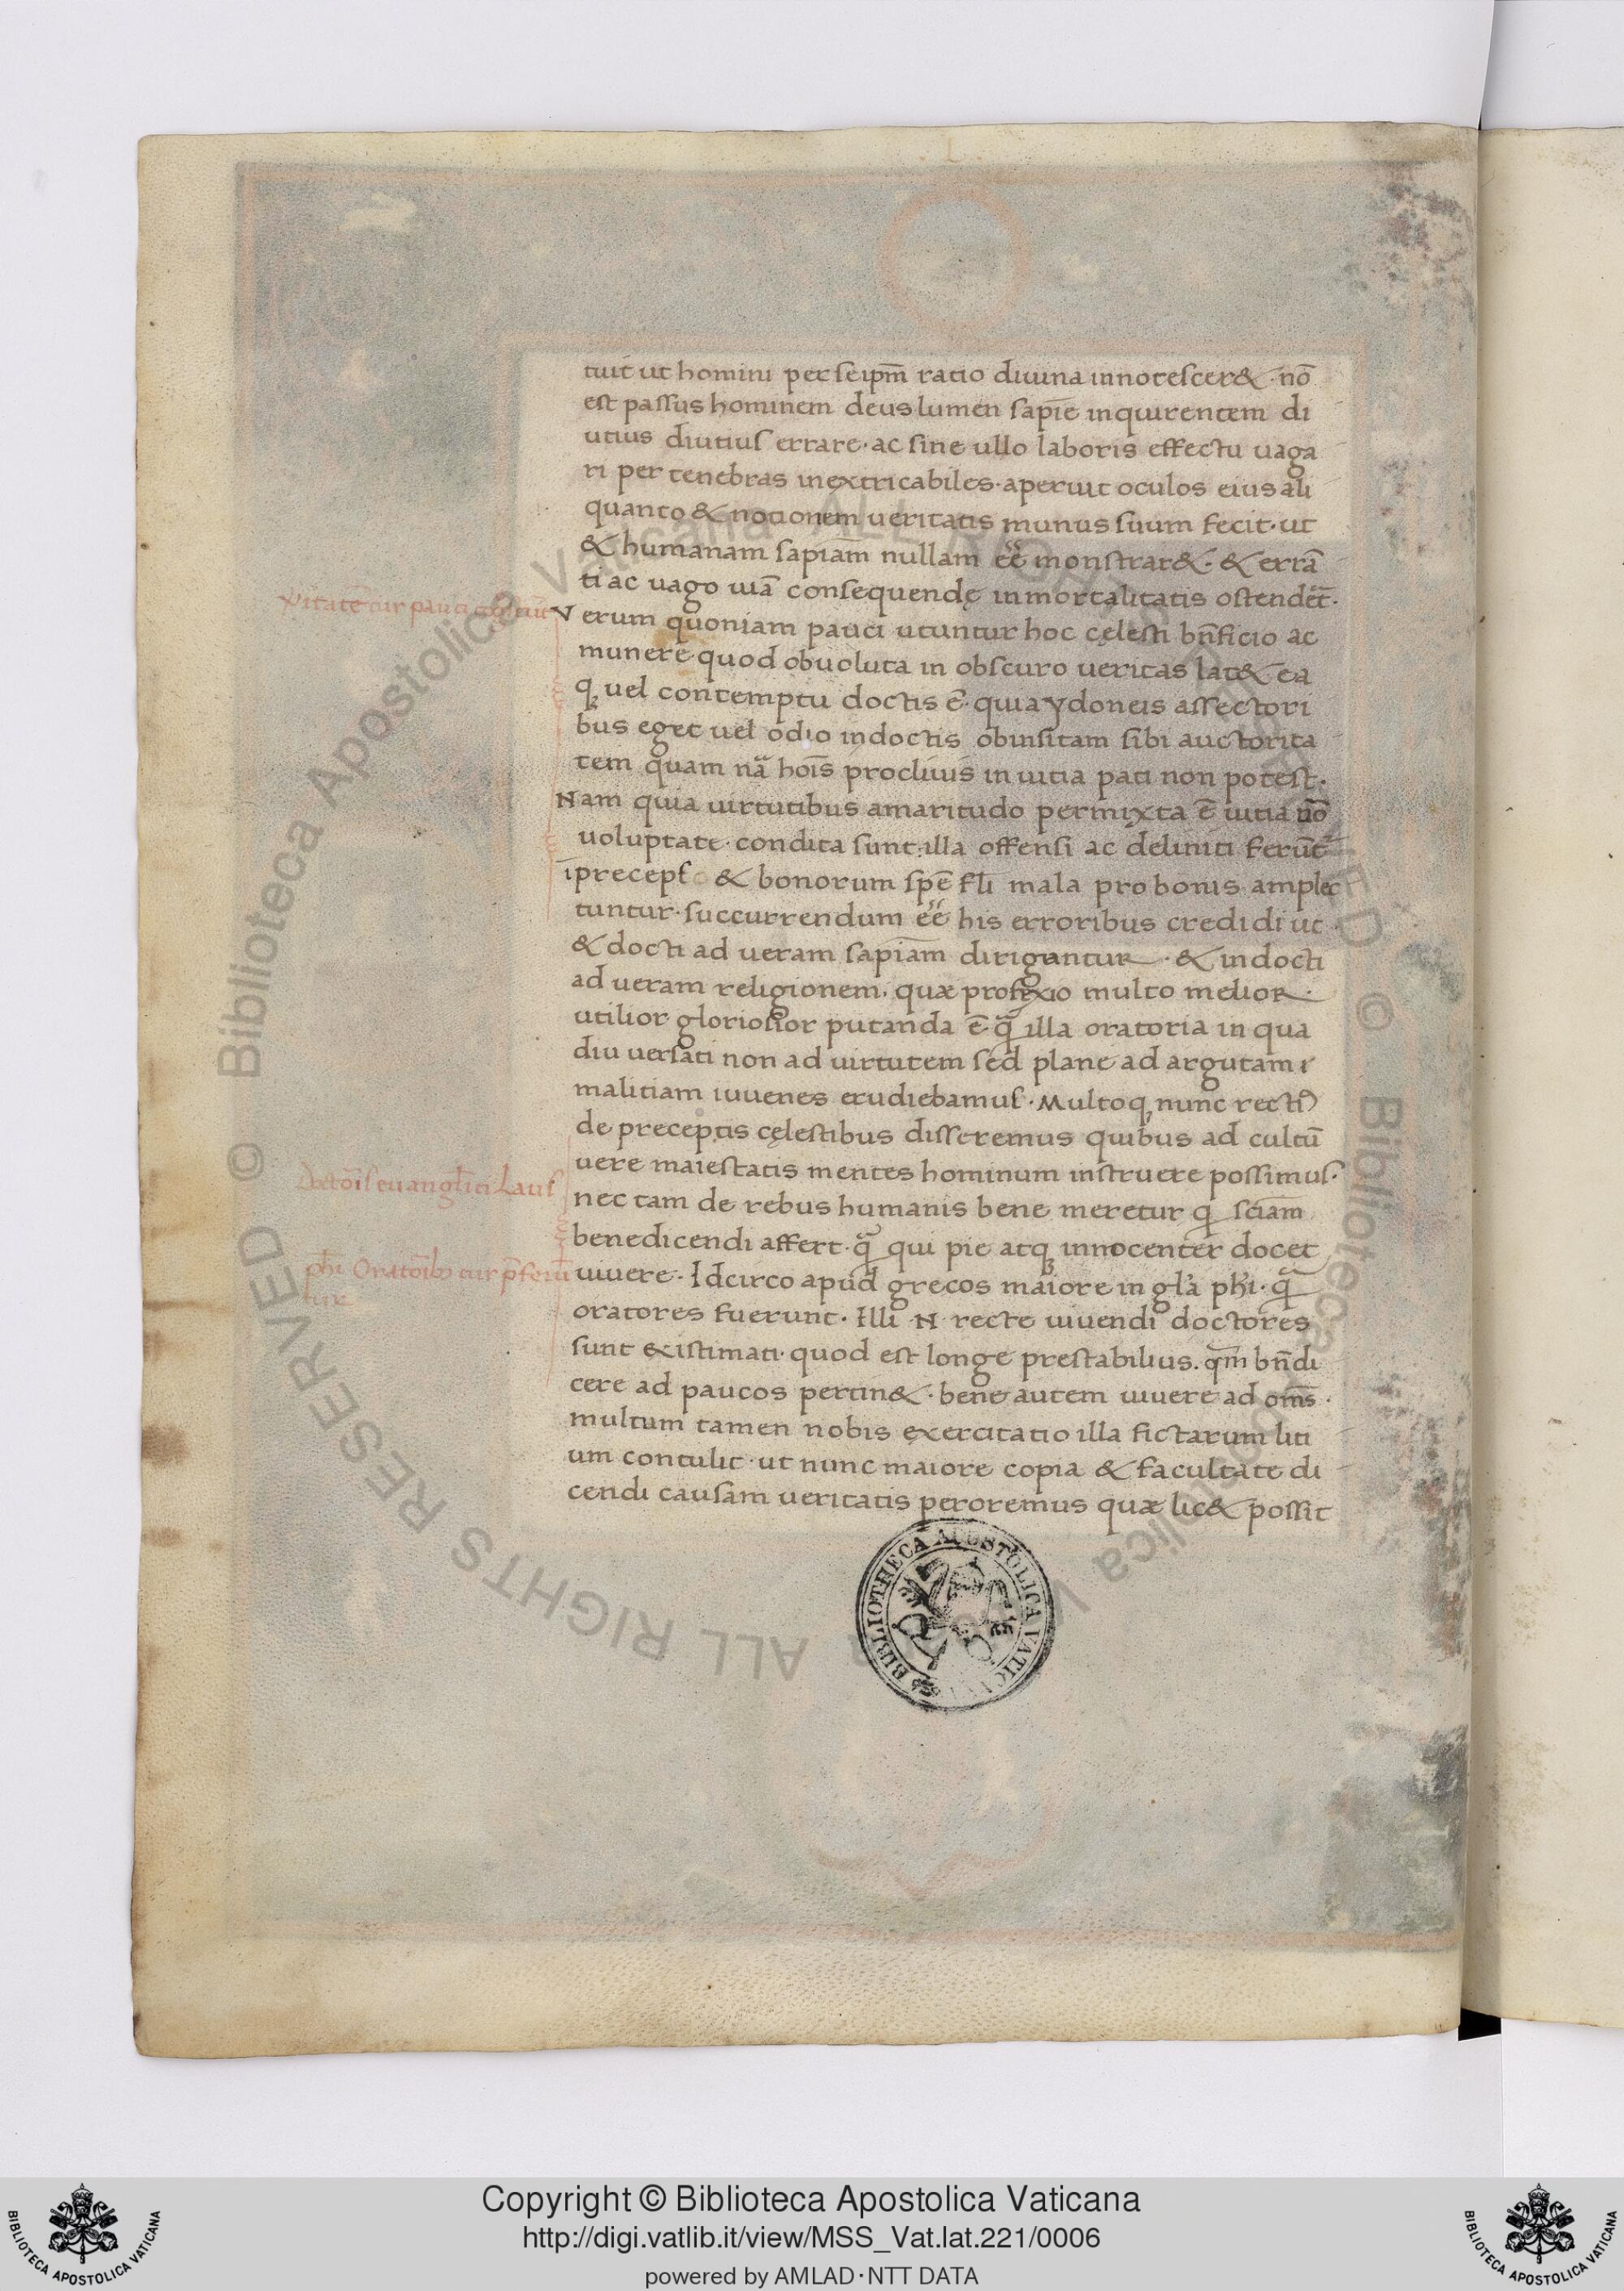 tuit ut homini per seipm̄ ratio diuina innotescer&· nō
est passus hominem deus lumen sapiē inquirentem di
utius diutius errare· ac sine ullo laboris effectu uaga
ri per tenebras inextricabiles· aperuit oculos eius ali
quanto & notionem ueritatis munus suum fecit· ut
& humanam sapiam̄ nullam eē monstrar&· & errā
ti ac uago uiā consequendę inmortalitatis ostender&·
Verum quoniam pauci utuntur hoc cęlesti bn̄ficio ac
munere quod obuoluta in obscuro ueritas lat& ea
q; uel contemptu doctis ē· quia ydoneis assectori
bus eget uel odio indoctis obinsitam sibi auctorita
tem quam nā hoīs procliuis in uitia pati non potest·
Nam quia uirtutibus amaritudo permixta ē uitia uō
uoluptate· condita sunt· illa offensi ac deliniti ferūt
īprecep & bonorum spē fl̄i mala pro bonis amplec
tuntur· succurrendum eē his erroribus credidi ut
& docti ad ueram sapiam̄ dirigantur· & indocti
ad ueram religionem· quæ multo melior·
utilior gloriosior putanda ē q̄ illa oratoria in qua
diu uersati non ad uirtutem sed plane ad argutam
malitiam iuuenes erudiebamus· Multoq; nunc recti
de preceptis cęlestibus disseremus quibus ad cultū
uere maiestatis mentes hominum instruere possimus·
nec tam de rebus humanis bene meretur q sciam̄
benedicendi affert· q̄ qui pie atq; innocenter docet
uiuere· Idcirco apud grecos maiore in gl̄a ph̄i· q̄
oratores fuerunt· Illi ·N· recte uiuendi doctores
sunt existimati· quod est longe prestabilius· qm̄ bn̄di
cere ad paucos pertin&· bene autem uiuere ad om̄s·
multum tamen nobis exercitatio illa fictarum liti
um contulit· ut nunc maiore copia & facultate di
cendi causam ueritatis peroremus quæ lic& possit
cur pauci
euangl̄ici Laus
ph̄i Oratoīb; cur p̄ferūt
ur
BIBLIOTHECA APOSTOLICA VATICANA
© Biblioteca Apostolica Vaticana ALL RIGHTS RESERVED
© Biblioteca Apostolica Vaticana ALL RIGHTS RESERVED
Copyright © Biblioteca Apostolica Vaticana
http://digi.vatlib.it/view/MSS_Vat.lat.221/0006
powered by AMLAD·NTT DATA
BIBLIOTECA APOSTOLICA VATICANA
BIBLIOTECA APOSTOLICA VATICANA